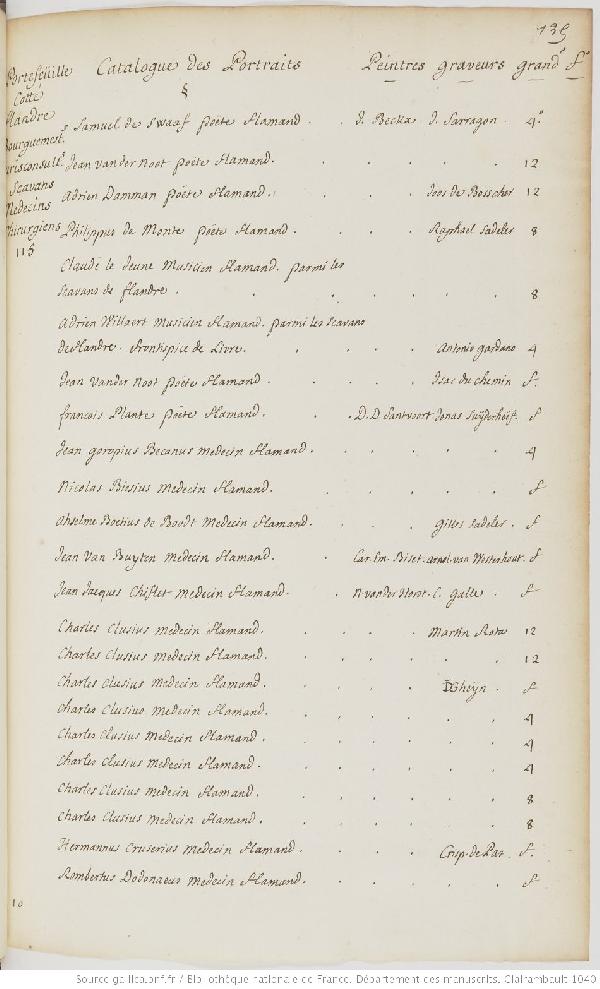 135
Portefeüille Catalogue des Portraits Peintres graveurs grand.r f.o
Cotté
flandre
Bourguemest.s Samuel de Swaaf poëte flamand. d. Becka d. Sarragon. 4.o
Jurisconsult.s Jean vander Noot poëte flamand. 12
Scavans
Adrien Damman poëte flamand. Joos de Bosscher 12
Medecins
Chirurgiens Philippus de Monte poëte flamand. Raphael Sadeler 8
115
Claude le Jeune Musicien flamand. parmi les
scavans de flandre. 8
Adrien Willaert Musicien flamand. parmi les scavans
de flandre. frontispice de Livre. Antonio gardano 4
Jean Vander Noot poëte flamand. Isac du chemin f.
francois Plante poëte flamand. D. D Santvoort Jonas Suyderhoef. f
Jean goropius Becanus medecin flamand. 4
Nicolas Biesius Medecin flamand. f
Anselme Boetius de Boodt Medecin flamand. Gilles Sadeler. f
Jean Van Buyten medecin flamand. Car. Em. Biset. arnol. van Westerhout. f
Jean Jacques Chiflet medecin flamand. N vander Horst. C. galle. f
Charles Clusius medecin flamand. Martin Rota 12
Charles Clusius medecin flamand. 12
Charles Clusius medecin flamand. DGheÿn. f
Charles Clusius medecin flamand. 4
Charles Clusius Medecin flamand. 4
Charles Clusius Medecin flamand. 4
Charles Clusius medecin flamand. 8
Charles Clusius medecin flamand. 8
Hermannus Cruserius medecin flamand. Crisp. de Pas. f.
Rombertus Dodonaeus medecin flamand. f
10
Source gallica.bnf.fr / Bibliothèque nationale de France. Département des manuscrits. Clairambault 1040